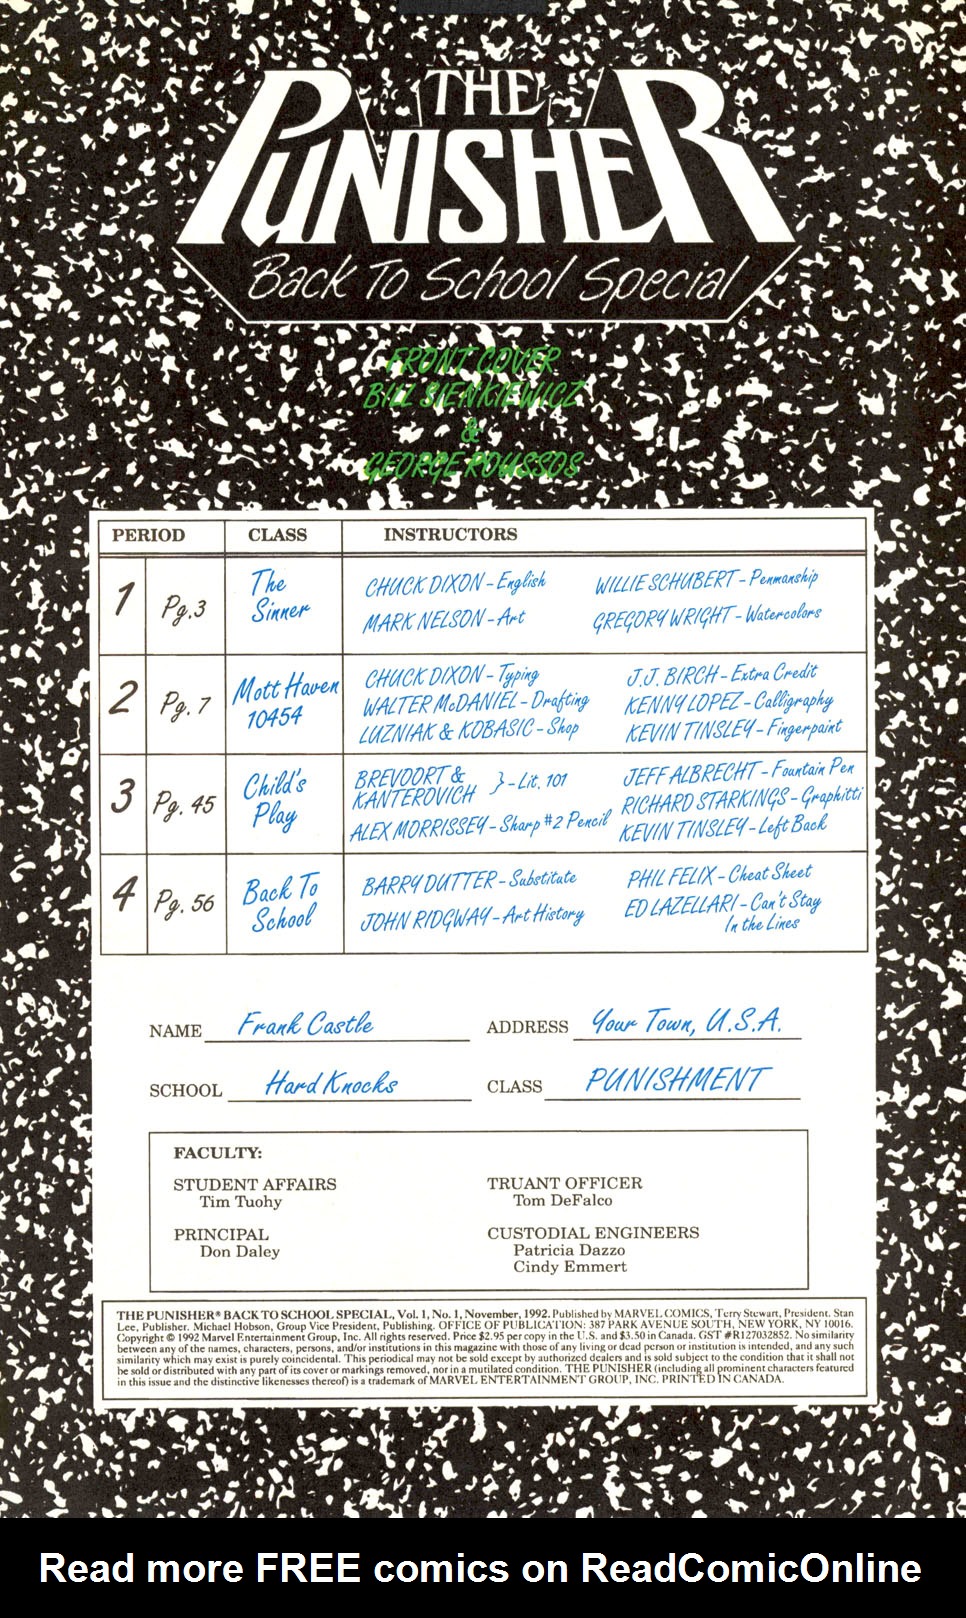 THE
PUNISHER
Back To School Special
FRONT COVER
BILL SIENKIEWICZ
&
GEORGE ROUSSOS
PERIOD CLASS INSTRUCTORS
1 Pg.3 The Sinner
CHUCK DIXON - English WILLIE SCHUBERT - Penmanship
MARK NELSON - Art GREGORY WRIGHT - Watercolors
2 Pg. 7 Mott Haven 10454
CHUCK DIXON - Typing J.J. BIRCH - Extra Credit
WALTER McDANIEL - Drafting KENNY LOPEZ - Calligraphy
LUZNIAK & KOBASIC - Shop KEVIN TINSLEY - Fingerpaint
3 Pg. 45 Child's Play
BREVOORT & KANTEROVICH } - Lit. 101 JEFF ALBRECHT - Fountain Pen
RICHARD STARKINGS - Graphitti
ALEX MORRISSEY - Sharp #2 Pencil KEVIN TINSLEY - Left Back
4 Pg. 56 Back To School
BARRY DUTTER - Substitute PHIL FELIX - Cheat Sheet
JOHN RIDGWAY - Art History ED LAZELLARI - Can't Stay
In the Lines
NAME Frank Castle ADDRESS Your Town, U.S.A.
SCHOOL Hard Knocks CLASS PUNISHMENT
FACULTY:
STUDENT AFFAIRS TRUANT OFFICER
Tim Tuohy Tom DeFalco
PRINCIPAL CUSTODIAL ENGINEERS
Don Daley Patricia Dazzo
Cindy Emmert
THE PUNISHER® BACK TO SCHOOL SPECIAL, Vol. 1, No. 1, November, 1992. Published by MARVEL COMICS, Terry Stewart, President. Stan
Lee, Publisher. Michael Hobson, Group Vice President, Publishing. OFFICE OF PUBLICATION: 387 PARK AVENUE SOUTH, NEW YORK, NY 10016.
Copyright © 1992 Marvel Entertainment Group, Inc. All rights reserved. Price $2.95 per copy in the U.S. and $3.50 in Canada. GST #R127032852. No similarity
between any of the names, characters, persons, and/or institutions in this magazine with those of any living or dead person or institution is intended, and any such
similarity which may exist is purely coincidental. This periodical may not be sold except by authorized dealers and is sold subject to the condition that it shall not
be sold or distributed with any part of its cover or markings removed, nor in a mutilated condition. THE PUNISHER (including all prominent characters featured
in this issue and the distinctive likenesses thereof) is a trademark of MARVEL ENTERTAINMENT GROUP, INC. PRINTED IN CANADA.
Read more FREE comics on ReadComicOnline